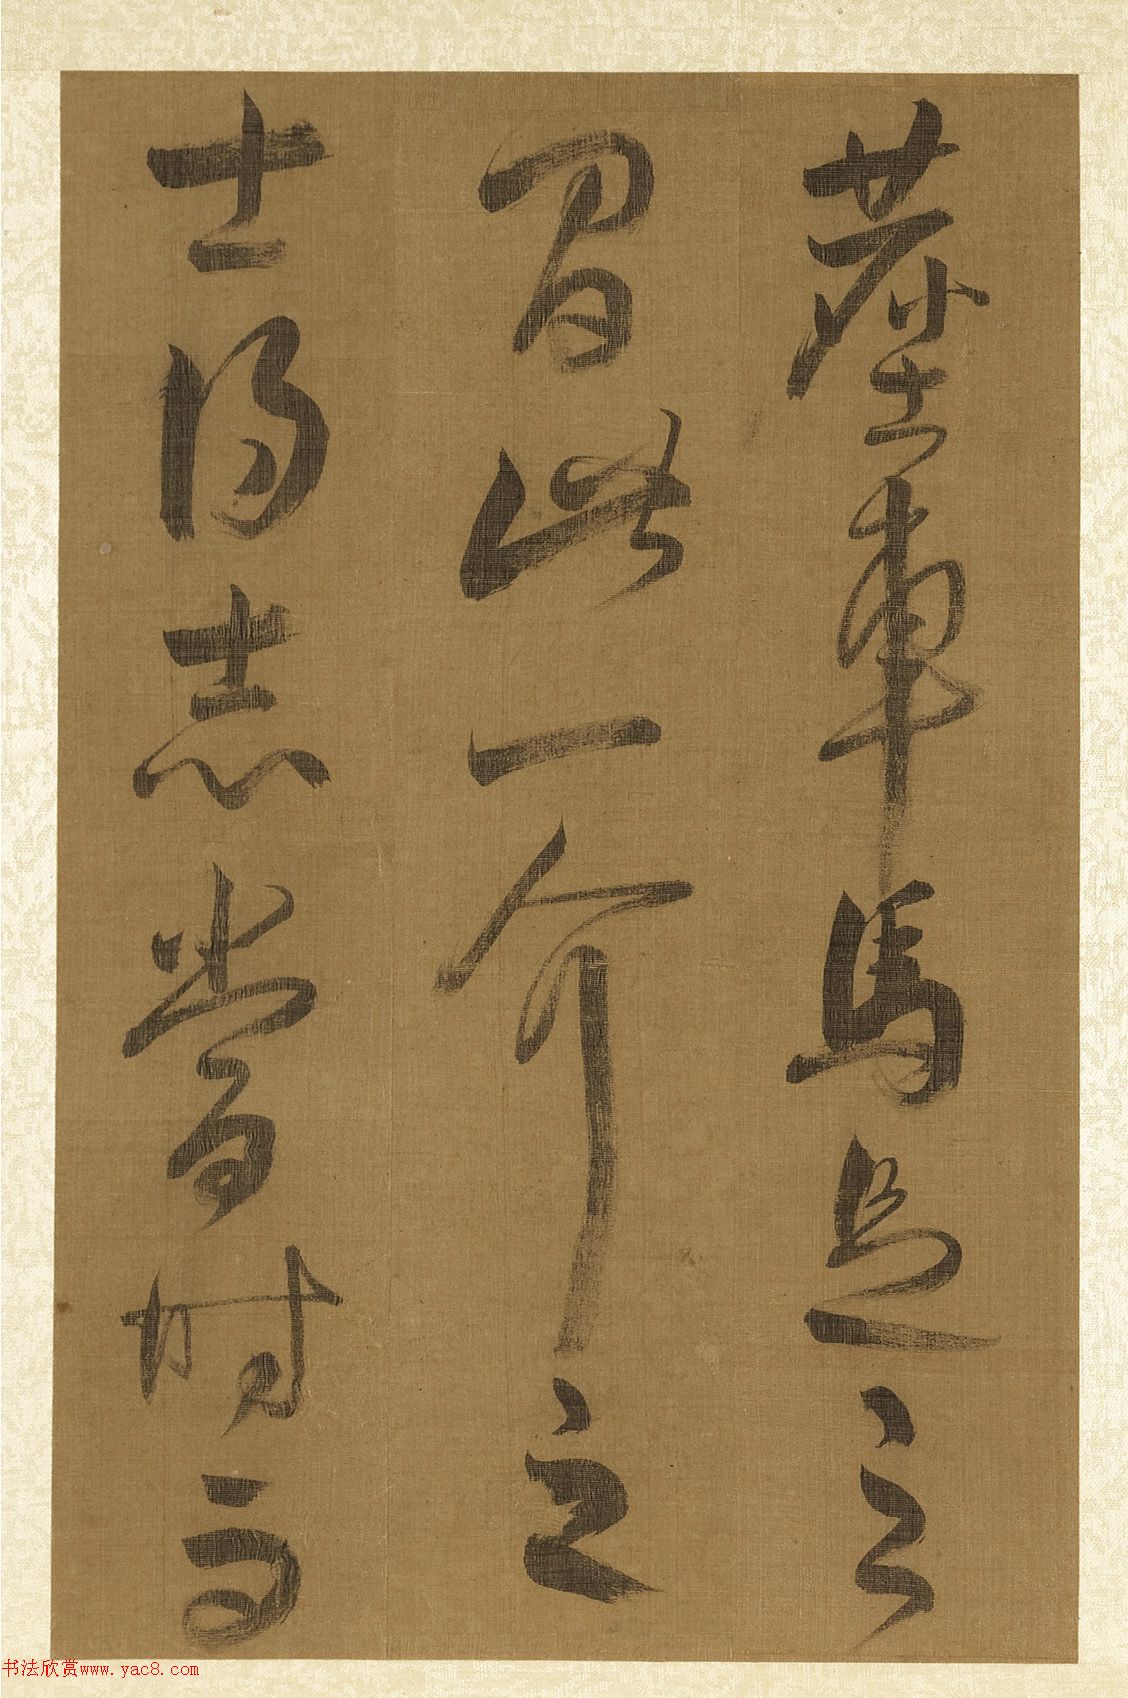 塵車馬足之
間此一介之
士得志當時而
书法欣赏www.yac8.com